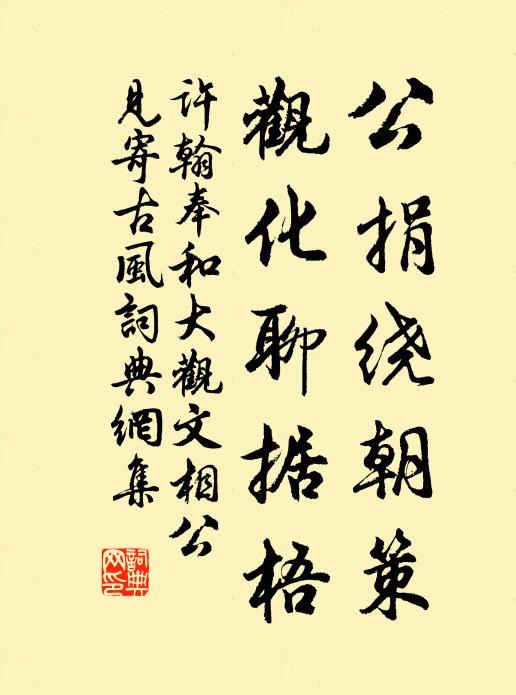 公捐绕朝策
觀化聊据梧
許翰奉和大觀文相公
見寄古風詞典網集
詞典
网印